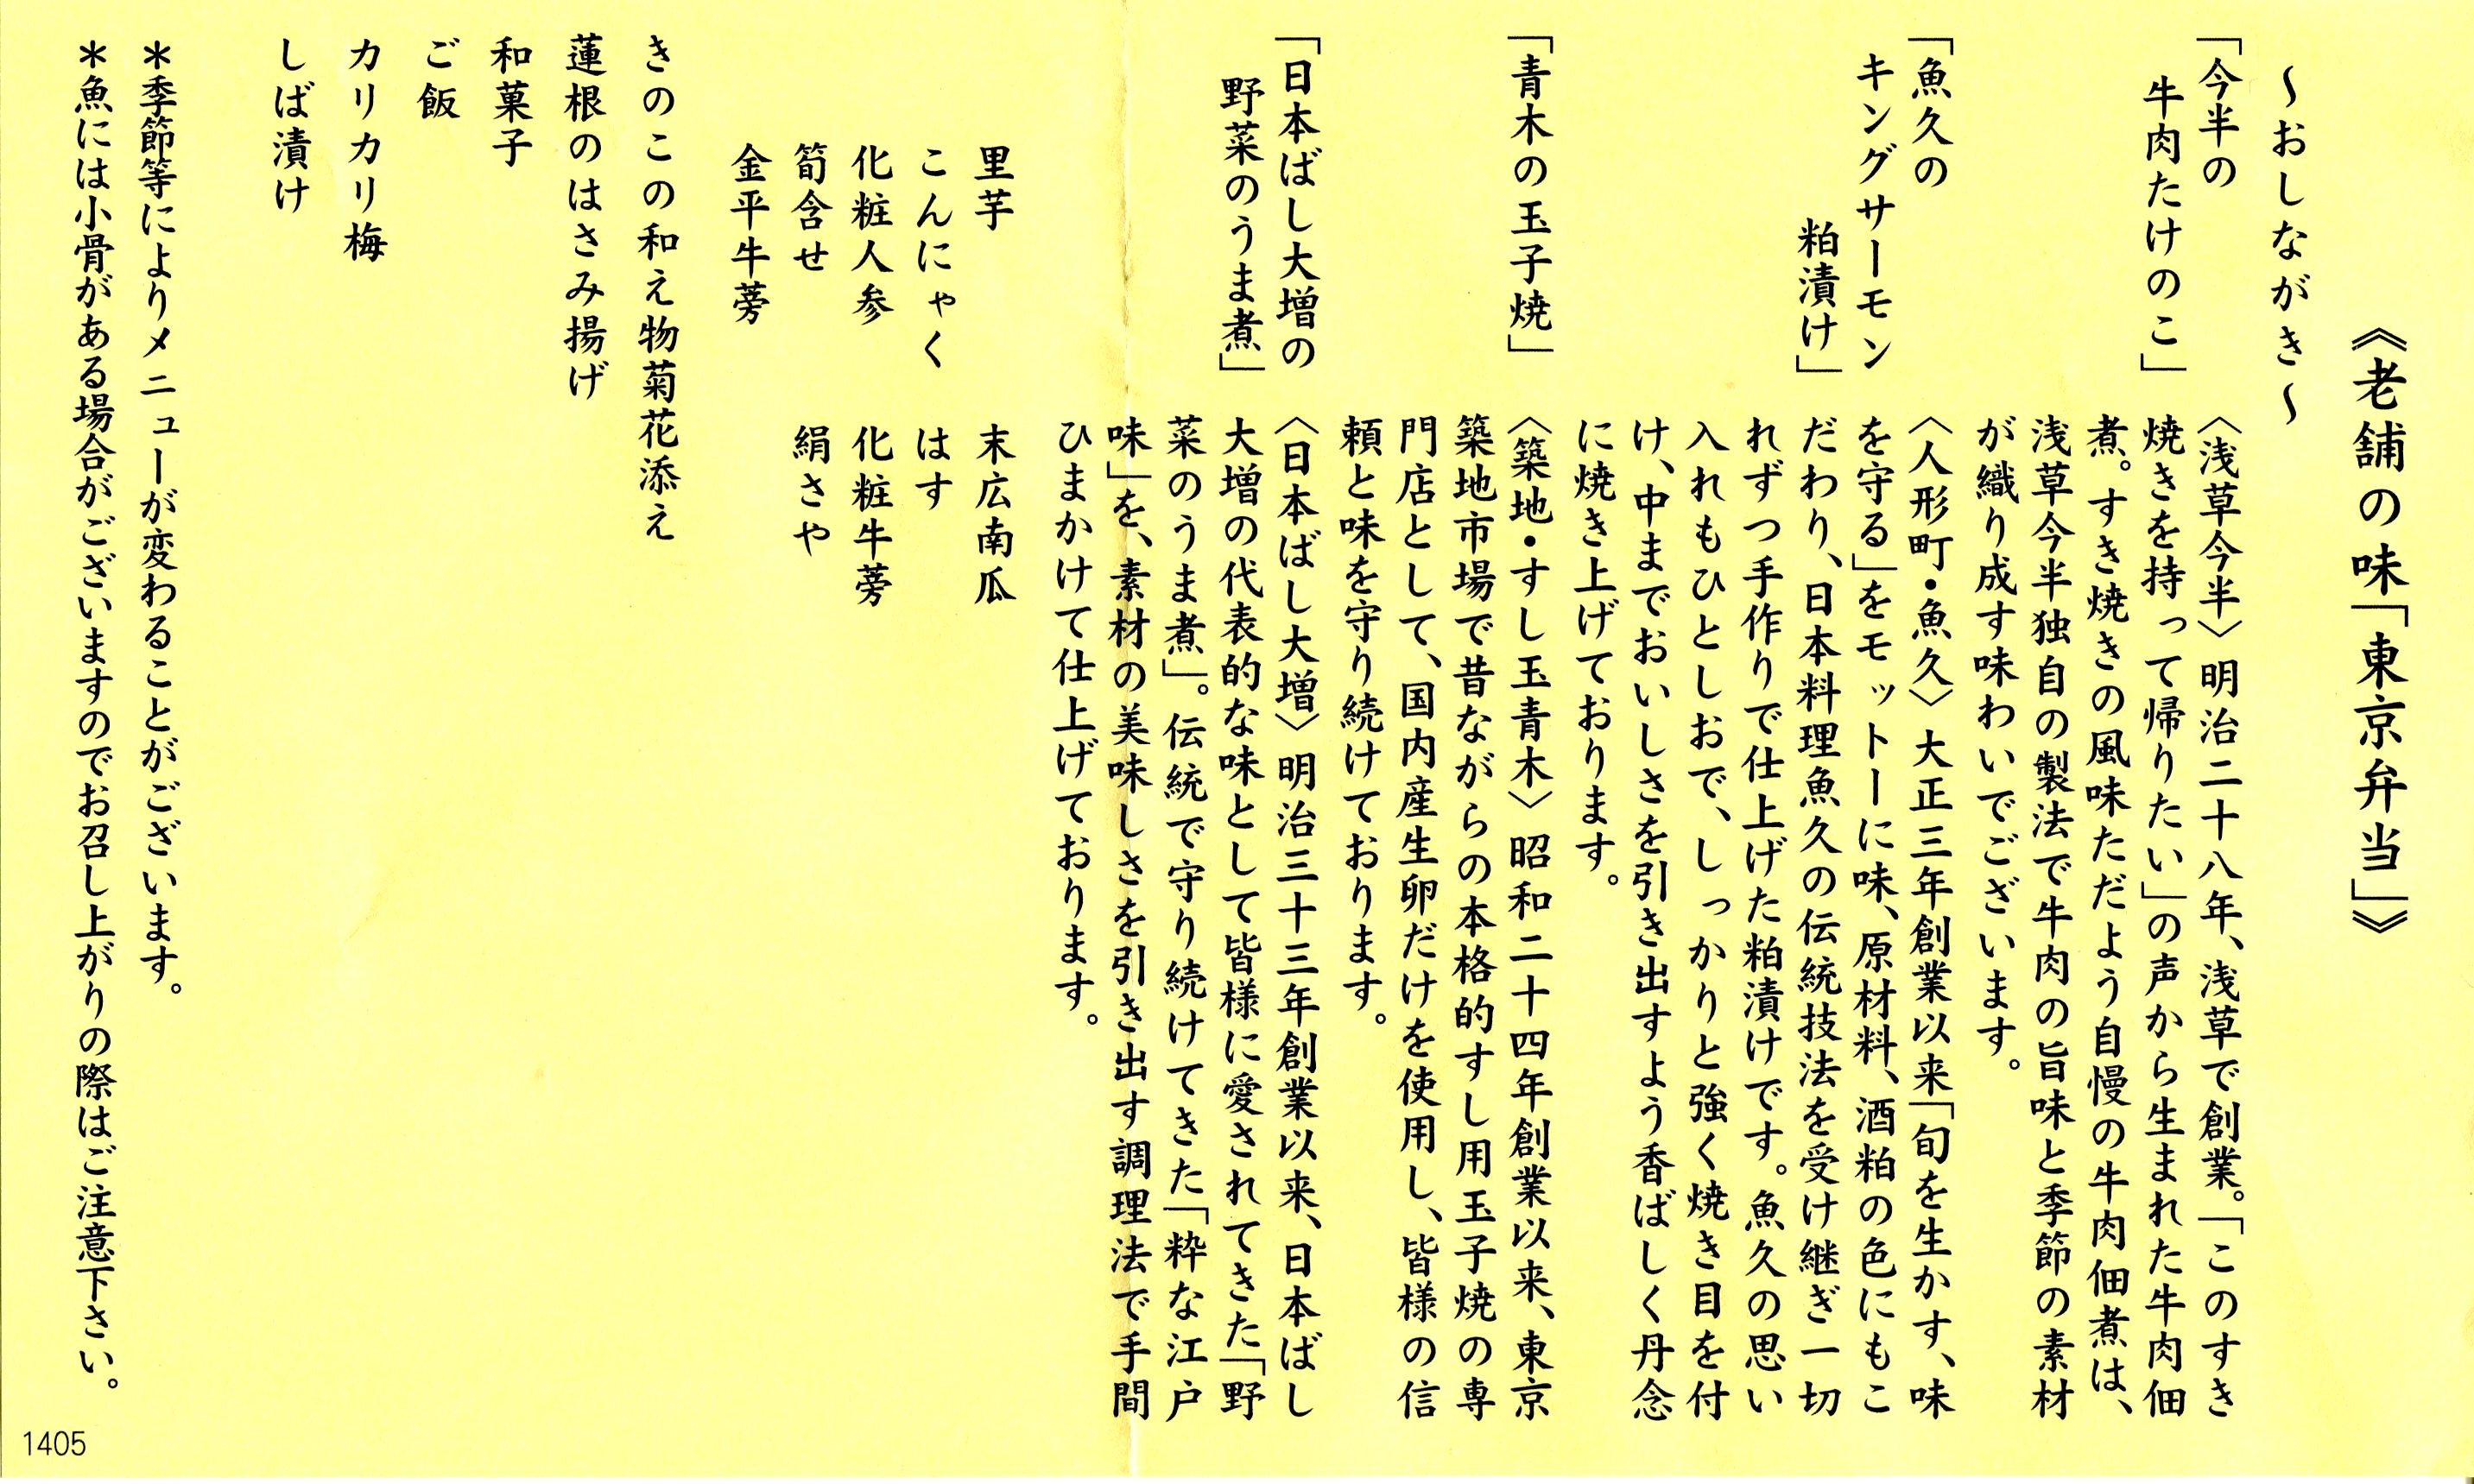 《老舗の味「東京弁当」》
～おしながき～
「今半の
牛肉たけのこ」
〈浅草今半〉明治二十八年、浅草で創業。「このすき
焼きを持って帰りたい」の声から生まれた牛肉佃
煮。すき焼きの風味ただよう自慢の牛肉佃煮は、
浅草今半独自の製法で牛肉の旨味と季節の素材
が織り成す味わいでございます。
「魚久の
キングサーモン
粕漬け」
〈人形町・魚久〉大正三年創業以来「旬を生かす、味
を守る」をモットーに味、原材料、酒粕の色にもこ
だわり、日本料理魚久の伝統技法を受け継ぎ一切
れずつ手作りで仕上げた粕漬けです。魚久の思い
入れもひとしおで、しっかりと強く焼き目を付
け、中までおいしさを引き出すよう香ばしく丹念
に焼き上げております。
「青木の玉子焼」
〈築地・すし玉青木〉昭和二十四年創業以来、東京
築地市場で昔ながらの本格的すし用玉子焼の専
門店として、国内産生卵だけを使用し、皆様の信
頼と味を守り続けております。
「日本ばし大増の
野菜のうま煮」
〈日本ばし大増〉明治三十三年創業以来、日本ばし
大増の代表的な味として皆様に愛されてきた「野
菜のうま煮」。伝統で守り続けてきた「粋な江戸
味」を、素材の美味しさを引き出す調理法で手間
ひまかけて仕上げております。
里芋 末広南瓜
こんにゃく はす
化粧人参 化粧牛蒡
筍含せ 絹さや
金平牛蒡
きのこの和え物菊花添え
蓮根のはさみ揚げ
和菓子
ご飯
カリカリ梅
しば漬け
＊季節等によりメニューが変わることがございます。
＊魚には小骨がある場合がございますのでお召し上がりの際はご注意下さい。
1405